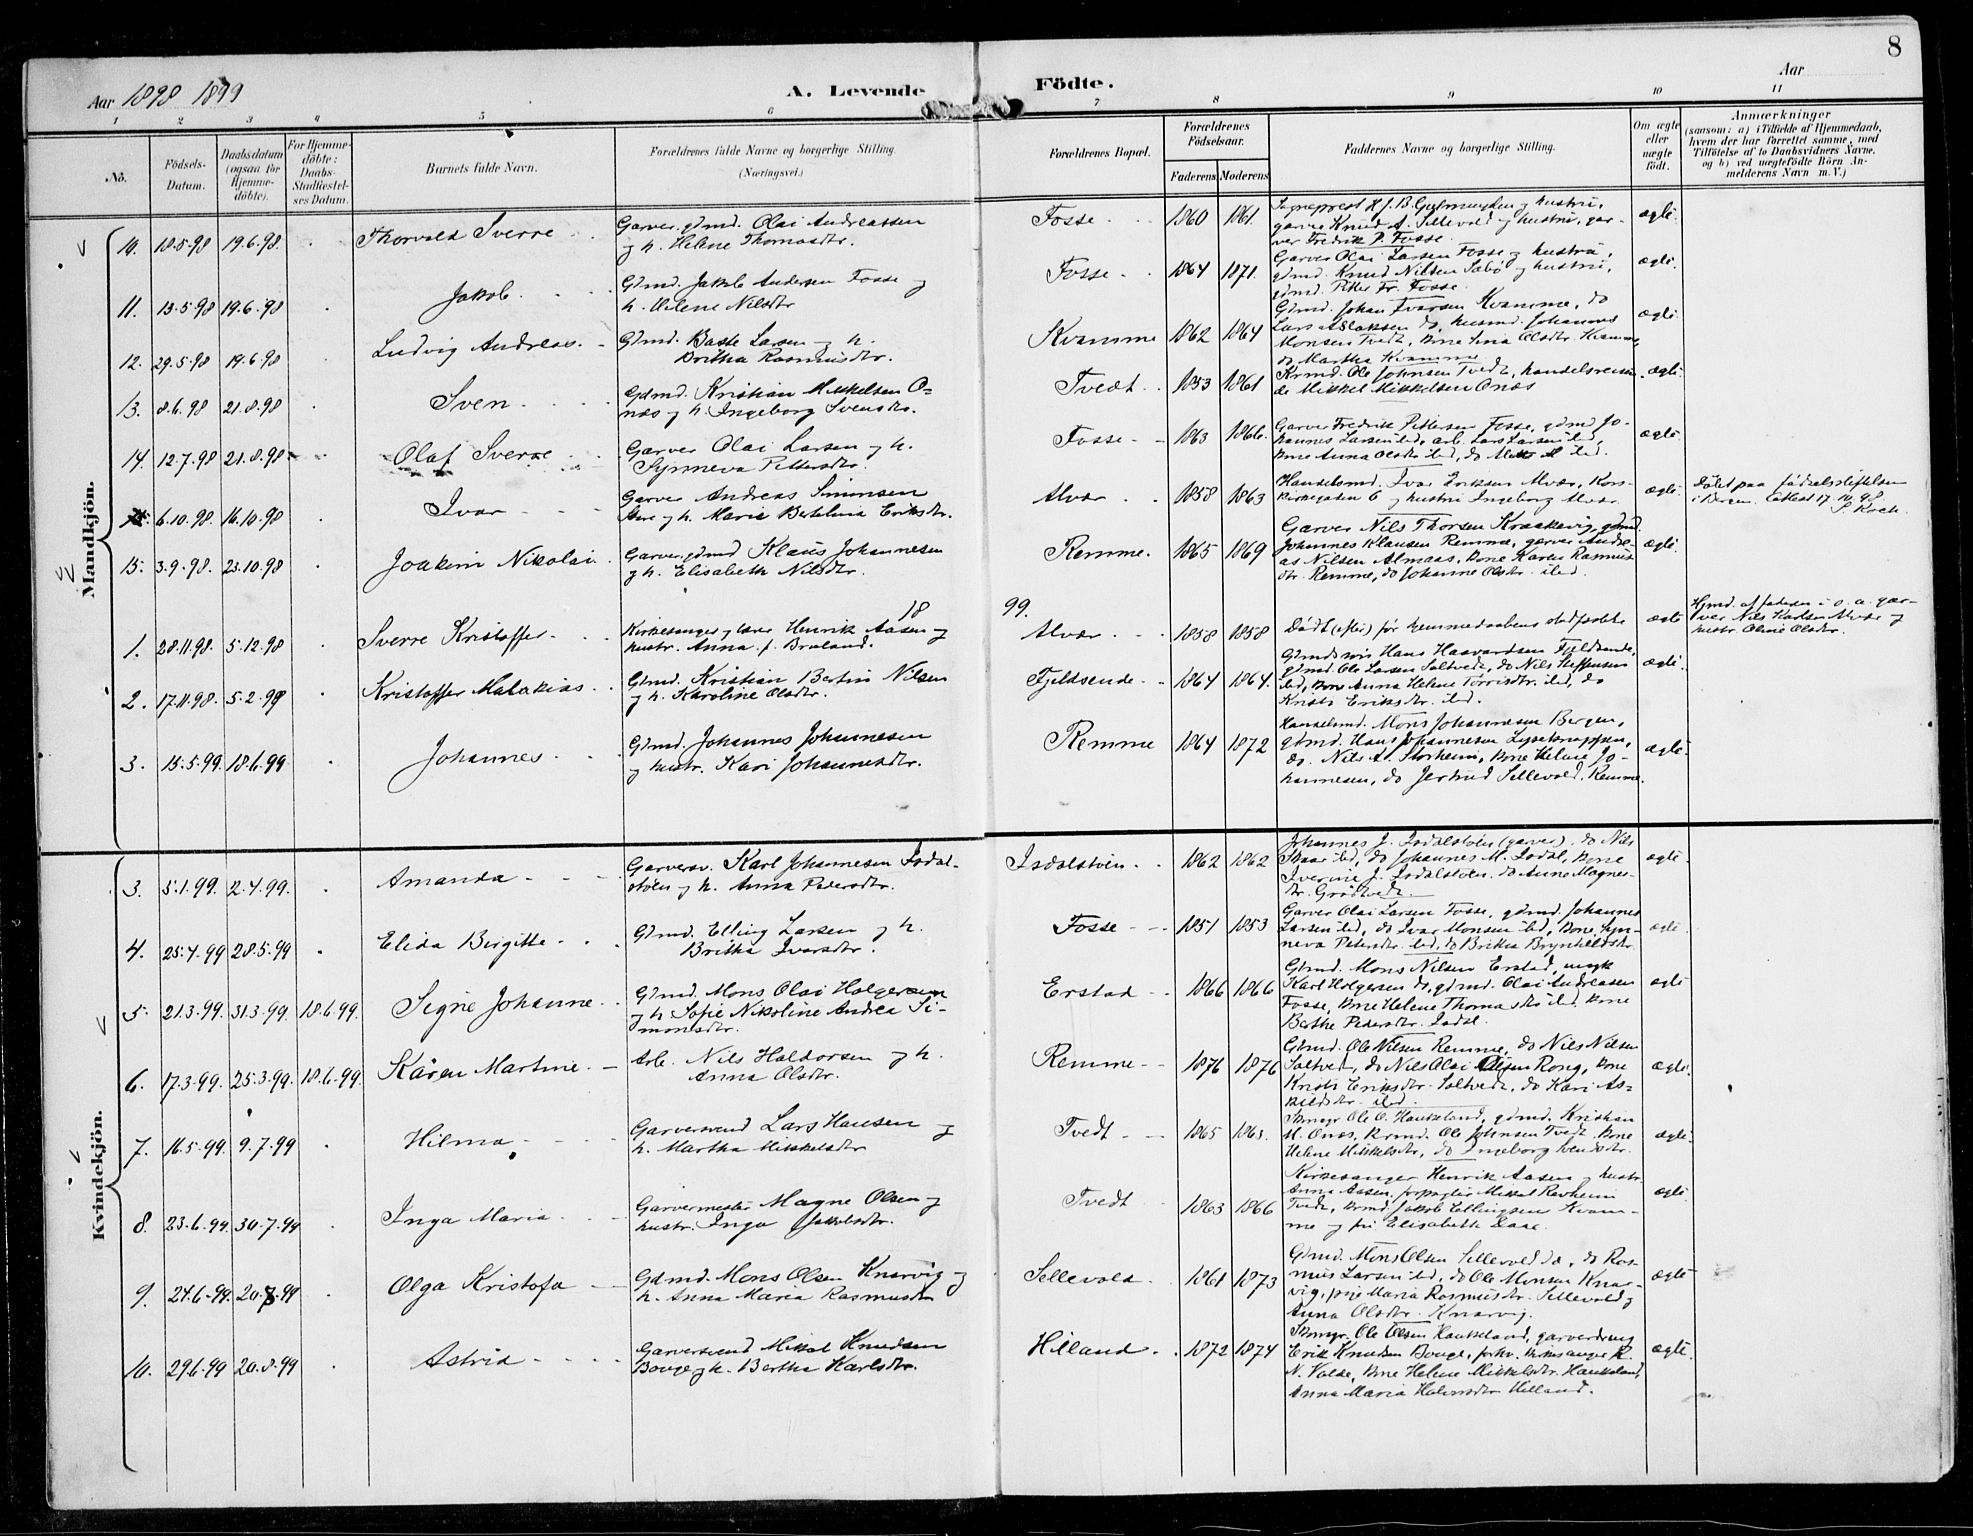 8
Aar 1898 1899
A. Levende Födte.
Aar
1 2 3 4 5 6 7 8 9 10 11
No.
Födsels-Datum.
Daabsdatum (ogsaa for Hjemme-döbte).
For Hjemme-döbte: Daabs-Stadfæstel-ses Datum.
Barnets fulde Navn.
Forældrenes fulde Navne og borgerlige Stilling.
(Næringsvei.)
Forældrenes Bopæl.
Forældrenes Födselsaar.
Faderens. Moderens
Faddernes Navne og borgerlige Stilling.
Om ægte eller uægte födt.
Anmærkninger
(saasom: a) i Tilfælde af Hjemmedaab,
hvem der har forrettet samme, med
Tilföielse af to Daabsvidners Navne,
og b) ved uægtefödte Börn An-
melderens Navn m. V.)
Mandkjön.
10. 18.5.98 19.6.98 Thorvald Sverre
Garver, gdmd. Olai Andreassen
og h. Helene Thomasdtr.
Fosse 1860 1861.
Sogneprest H. J. B. og hustru,
garver Knud A. Sellevold og hustru, gar-
ver Fredrik P. Fosse.
ægte.
11. 13.5.98 19.6.98 Jakob
Gdmd. Jakob Andersen Fosse og
h. Helene Nilsdtr
Fosse 1864 1871.
Garver Olai Larsen Fosse og hustru,
gdmd. Knud Nilsen Sæbø og hustru,
gdmd. Petter Fr. Fosse.
ægte.
12. 29.5.98 19.6.98 Ludvig Andreas
Gdmd. Baste Larsen og h.
Britha Rasmusdtr.
Kvamme 1862 1864
Gdmd. Johan Ivarsen Kvamme, do
Lars Aslaksen do, husmd. Johannes
Monsen Tvedt, kone Sina Olsdtr. Kvamme,
do Martha Kvamme
ægte.
13. 8.6.98 21.8.98 Sven
Gdmd. Kristian Mikkelsen O-
næs og h. Ingeborg Svensdtr.
Tvedt 1853 1861
Krmd. Ole Johnsen Tvedt, handelsreisen-
de Mikkel Mikkelsen Onæs
ægte.
14. 12.7.98 21.8.98 Olaf Sverre
Garver Olai Larsen og h.
Synneva Pettersdtr.
Fosse 1863 1866.
Garver Fredrik Pettersen Fosse, gdmd. Jo-
hannes Larsen ibd., arb. Lars Larsen ibd.,
kone Anna Olsdtr ibd, do ibd.
ægte
6.10.98 16.10.98 Ivar
Garver Andreas Simonsen
og h. Marie Bertelina Eriksdtr.
Alvær 1858 1863
Handelsmd. Ivar Eriksen Alvær, Kors-
kirkegaten 6 og hustru Ingeborg Alvær
ægte
Døbt paa fødselsstiftelsen
i Bergen. Attest 17.10.98
S. Koch.
15. 3.9.98. 23.10.98 Joakim Nikolai
Garver, gdmd Klaus Johannesen
og h. Elisabeth Nilsdtr.
Remme. 1865 1869
Garver Nils Thorsen Kraakevig, gdmd.
Johannes Klausen Remme, garver Andre-
as Nilsen Almaas, kone Karen Rasmus-
dtr. Remme, do Johanne Olsdtr. ibd.
ægte.
18 99.
1. 28.11.98. 5.12.98 Sverre Kristoffer
Kirkesanger og lærer Henrik Aasen og
hustr. Anna f. Braland.
Alvær 1858 1858
Dødt (efter) før hjemmedaabens stadfæstelse
ægte
Hjmd. af faderen i o. a. gar-
ver Nils Karlsen Alvær og
hustr. Oline Olsdtr.
2. 17.11.98. 5.2.99 Kristoffer Malakias
Gdmd. Kristian Bertin Nilsen
og h. Karoline Olsdtr.
Fjeldsende 1864 1864.
Gdmdssøn Hans Haavardsen Fjeldsende,
gdmd. Ole Larsen Soltvedt, do Nils Steffensen
ibd, kone Anna Helene Torrisdtr. ibd, do
Kristi Eriksdtr. ibd.
ægte.
3. 15.5.99 18.6.99 Johannes
Gdmd. Johannes Johannesen
og hustr. Kari Johannesdtr.
Remme 1864 1872
Handelsmd. Mons Johannesen Bergen,
gdmd. Hans Johannesen Lyseknappen,
do. Nils A. Storheim, kone Helene Jo-
hannesen, do Jertrud Sellevold, Remme.
ægte.
Kvindekjön.
3. 5.1.99. 2.4.99. Amanda
Garversv. Karl Johannesen Isdal-
støen og h. Anna Pedersdtr.
Isdalstøen 1862 1862
Johannes J. Isdalstøen (garver), do Nils
Skaar ibd, do Johannes M. Isdal, kone
Iverine J. Isdalstøen, do Anne Magnes-
dtr. Grøtvedt
ægte
4. 25.4.99 28.5.99 Elida Birgitte
Gdmd. Elling Larsen og h.
Britha Ivarsdtr.
Fosse 1851 1853
Garver Olai Larsen Fosse, gdmd. Johannes
Larsen ibd, do Ivar Monsen ibd, kone Syn-
neva Petersdtr. ibd, do Britha Brynhildsdtr.
ægte
5. 21.3.99. 31.3.99. 18.6.99. Signe Johanne
Gdmd. Mons Olai Holgersen
og h Sofie Nikoline Andrea Si-
monsdtr.
Erstad 1866 1866
Gdmd. Mons Nilsen Erstad, ungk
Karl Holgersen do, gdmd. Olai Andreassen
Fosse, kone Helene Thomasdtr ibd. kone
Berthe Pedersdtr. Isdal.
ægte
6. 17.3.99. 25.3.99. 18.6.99. Karen Martine
Arb. Nils Haldorsen og h.
Anna Olsdtr.
Remme 1876 1876
Gdmd. Ole Nilsen Remme, do Nils Nilsen
Soltvedt, do Nils Olai Olsen Rong, kone
Kristi Eriksdtr. Soltvedt, do Kari As-
kildsdtr. ibd.
ægte.
7. 16.5.99. 9.7.99 Hilma
Garversvend Lars Hansen og
h. Martha Mikkelsdtr
Tvedt 1865 1863.
Skmgr. Ole O. Haukeland, gdmd. Kristian
M. Onæs, krmd. Ole Johnsen Tvedt. kone
Helene Mikkelsdtr, do Ingeborg Svendsdtr.
ægte
8. 23.6.99. 30.7.99 Inga Maria
Garvermester Magne Olsen og
hustr. Inga Jakobsdtr.
Tvedt 1863 1866
Kirkesanger Henrik Aasen, hustr.
Anna Aasen, forpagter Mikal Ravheim
Tvedt, krmd. Jakob Ellingsen Kvam-
me og frk Elisabeth Daae.
ægte
9. 24.6.99. 20.8.99 Olga Kristofa
Gdmd. Mons Olsen Knarvig og
h. Anna Maria Rasmusdtr
Sellevold 1861 1873
Gdmd. Mons Olsen Sellevold do, do Ras-
mus Larsen ibd, do Ole Monsen Knar-
vig, pige Maria Rasmusdtr. Sellevold og
Anna Olsdtr. Knarvig.
ægte
10. 29.6.99 20.8.99 Astrid
Garversvend Mikal Knudsen
Bouge og h. Bertha Karlsdtr.
Hilland 1872 1874
Skmgr. Ole Olsen Haukeland, garverdreng
Erik Knudsen Bouge, forhv. kirkesanger K.
N. Valde, kone Helene Mikkelsdtr. Haukeland,
Anna Maria Holmsdtr Hilland.
ægte.